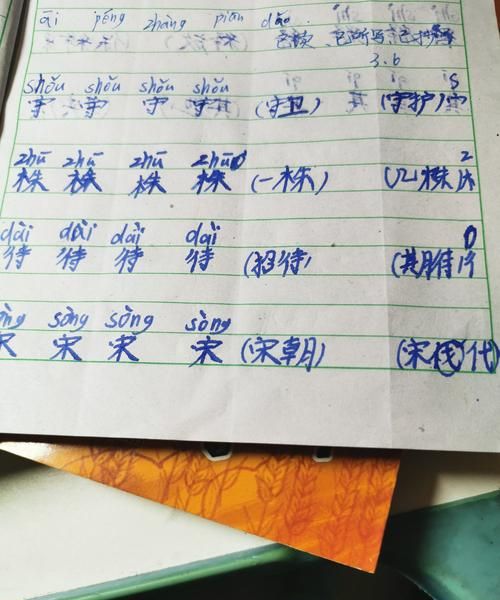 āi péng zhàng pian dǎo.
3.6
shǒu shǒu shǒu shǒu
守 守 守 守 (守卫) (守护)
zhū zhū zhū zhū
株 株 株 株 (一株) (几株
dài dài dài dài
待 待 待 待 (招待) (期待
sòng sòng sòng
宋 宋 宋 宋 (宋朝) (宋代)